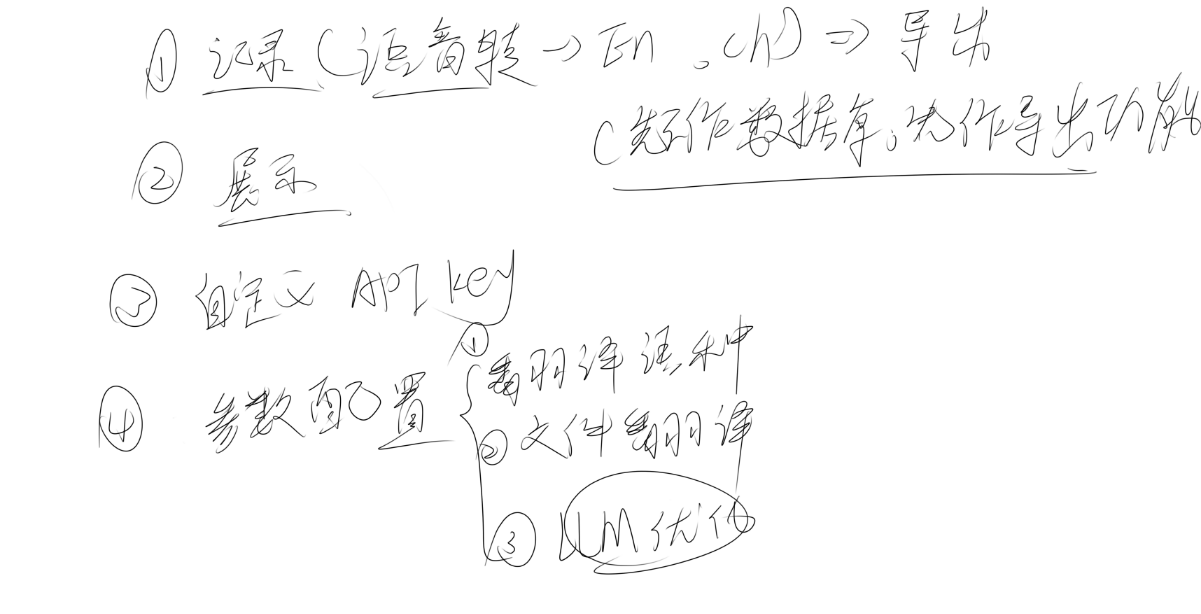 ① 记录(语音转→En、ch)⇒导出
(先不作数据库,先作导出功能
② 展示
③ 自定义 API key
④ 参数配置
① 翻译语种
② 文件翻译
③ LLM优化